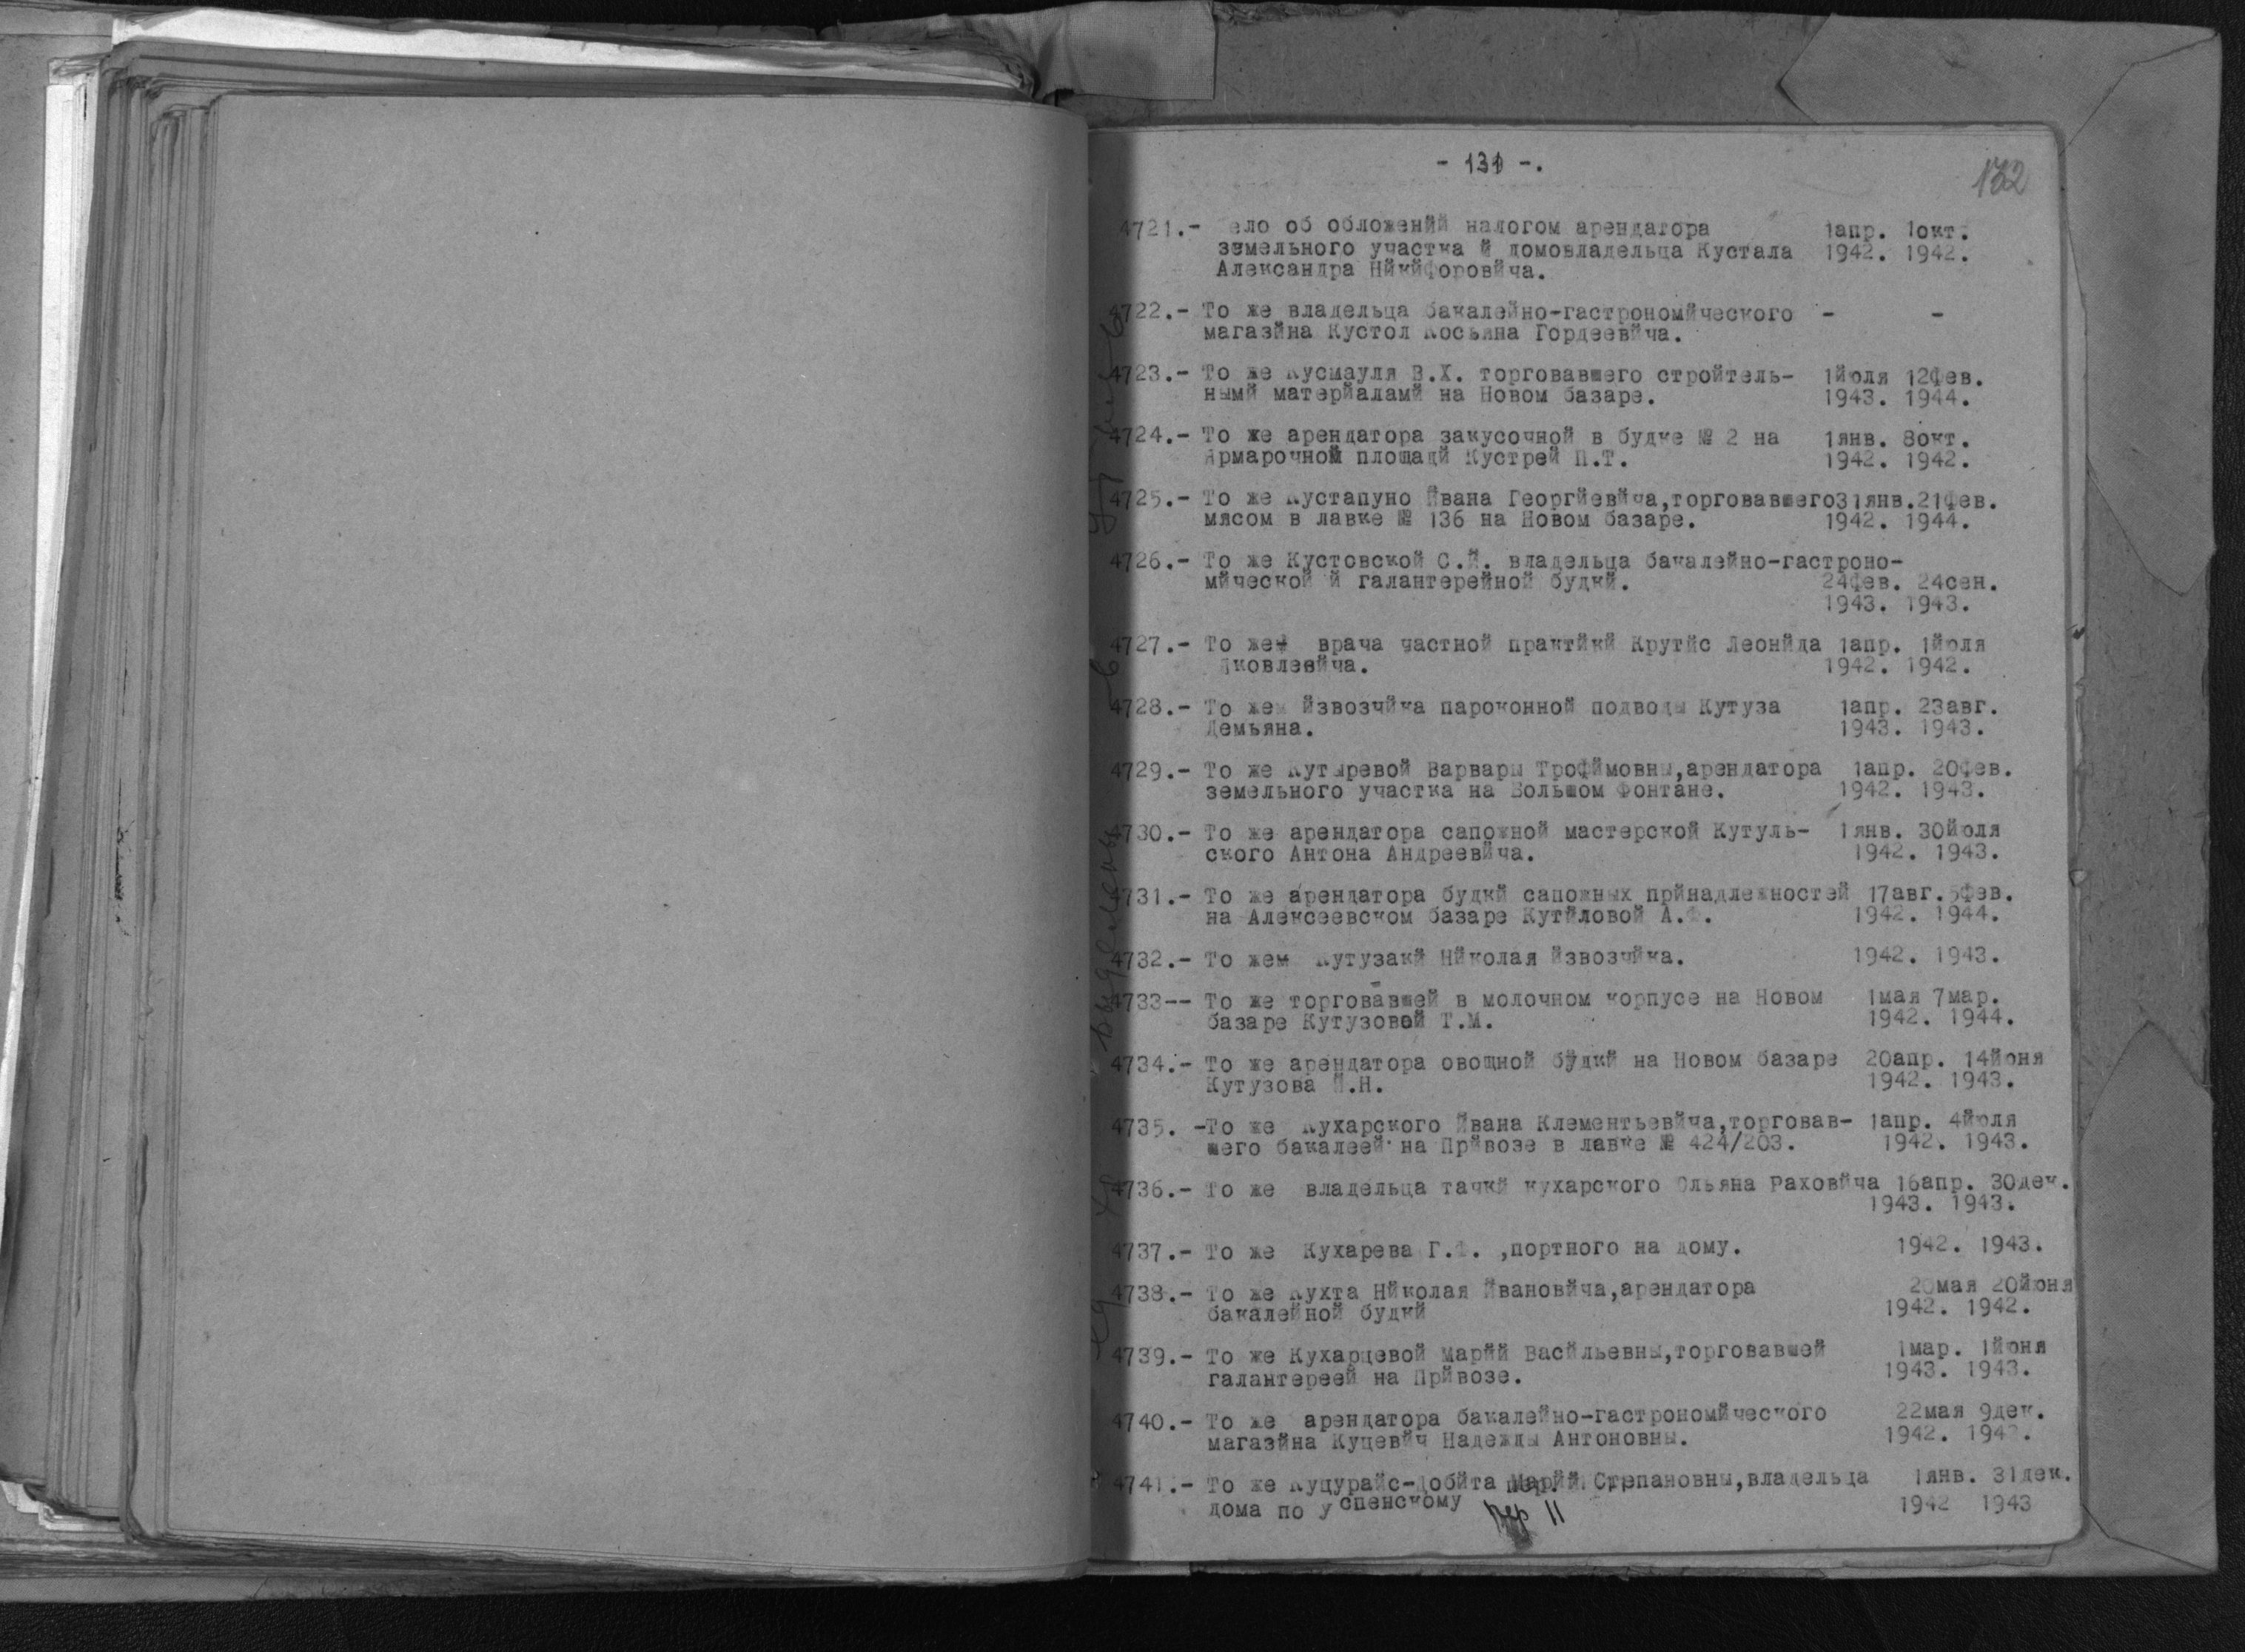 - 131 -.
132
4721.- ело об обложенйй налогом арендатора 1апр. 1окт.
земельного участка й домовладельца Кустала 1942. 1942.
Александра Нйкйфоровйча.
4722.- То же владельца бакалейно-гастрономйческого - -
магазйна Кустол Косьяна Гордеевйча.
4723.- То же Кусмауля В.Х. торговавшего стройтель- 1йюля 12фев.
нымй матерйаламй на Новом базаре. 1943. 1944.
4724.- То же арендатора закусочной в будке № 2 на 1янв. 8окт.
Ярмарочной площадй Кустрей П.Т. 1942. 1942.
4725.- То же Кустапуно Йвана Георгйевйча,торговавшего31янв.21фев.
мясом в лавке № 136 на Новом базаре. 1942. 1944.
4726.- То же Кустовской С.Й. владельца бакалейно-гастроно-
мйческой й галантерейной будкй. 24фев. 24сен.
1943. 1943.
4727.- То же врача частной практйкй Крутйс Леонйда 1апр. 1йюля
Яковлевйча. 1942. 1942.
4728.- То жем йзвозчйка пароконной подводы Кутуза 1апр. 23авг.
Демьяна. 1943. 1943.
4729.- То же Кутыревой Варвары Трофймовны,арендатора 1апр. 20фев.
земельного участка на Большом Фонтане. 1942. 1943.
4730.- То же арендатора сапожной мастерской Кутуль- 1янв. 30йюля
ского Антона Андреевйча. 1942. 1943.
4731.- То же арендатора будкй сапожных прйнадлежностей 17авг.5фев.
на Алексеевском базаре Кутйловой А.Ф. 1942. 1944.
4732.- То жем Кутузакй Нйколая йзвозчйка. 1942. 1943.
4733-- То же торговавшей в молочном корпусе на Новом 1мая 7мар.
базаре Кутузовой Т.М. 1942. 1944.
4734.- То же арендатора овощной будкй на Новом базаре 20апр. 14йюня
Кутузова Й.Н. 1942. 1943.
4735. -То же Кухарского Йвана Клементьевйча,торговав- 1апр. 4йюля
шего бакалеей на Прйвозе в лавке № 424/203. 1942. 1943.
4736.- То же владельца тачкй кухарского Ольяна Раховйча 16апр. 30дек.
1943. 1943.
4737.- То же Кухарева Г.Ф. ,портного на дому. 1942. 1943.
4738.- То же Кухта Нйколая Йвановйча,арендатора 20мая 20йюня
бакалейной будкй 1942. 1942.
4739.- То же Кухарцевой Марйй Васйльевны,торговавшей 1мар. 1йюня
галантереей на Прйвозе. 1943. 1943.
4740.- То же арендатора бакалейно-гастрономйческого 22мая 9дек.
магазйна Куцевйч Надежды Антоновны. 1942. 1942.
4741.- То же Куцурайс-Добйта Марйй Степановны,владельца 1янв. 31дек.
дома по успенскому пер 11 1942 1943